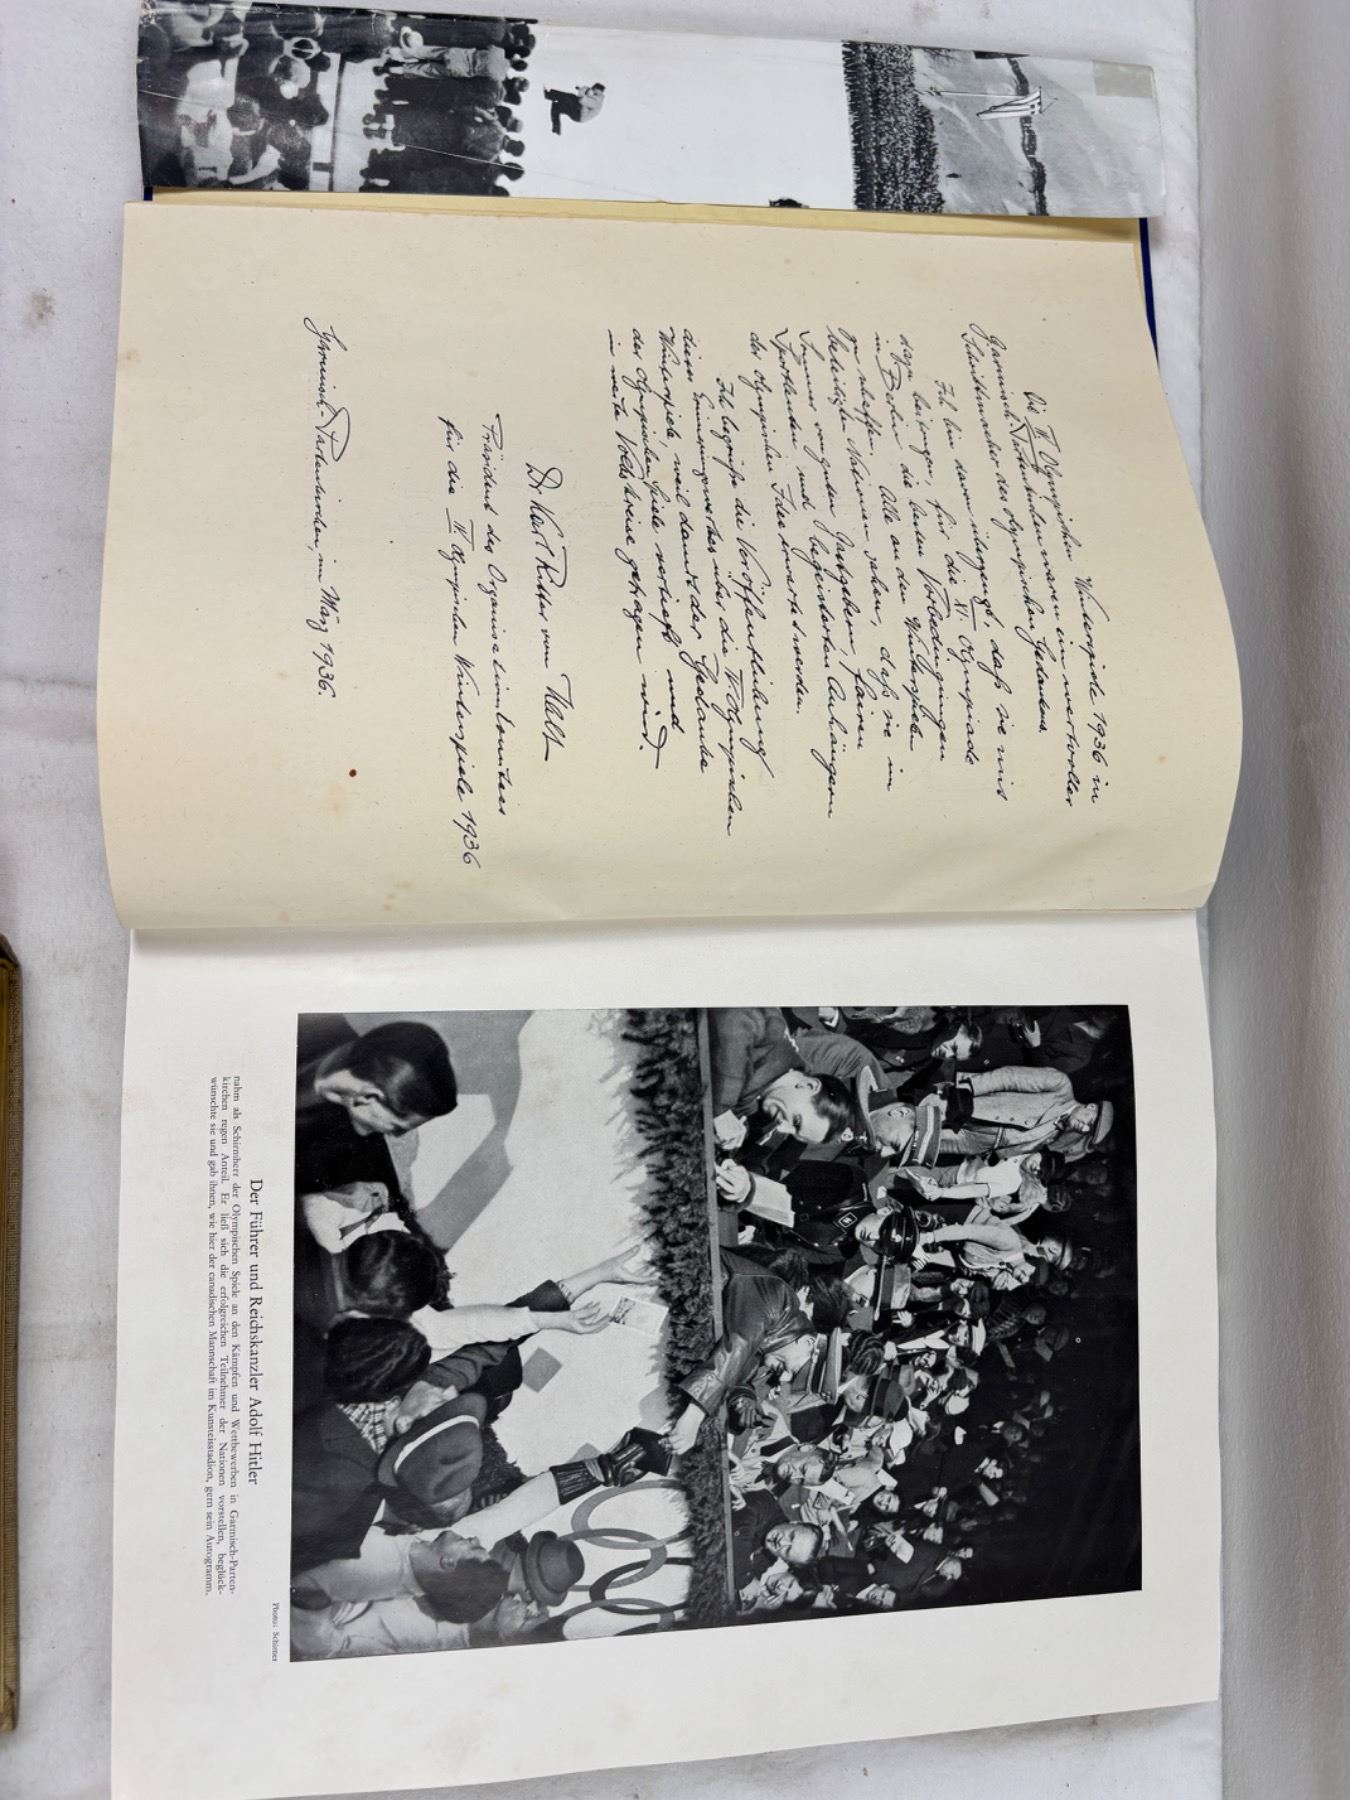 Die IV. Olympischen Winterspiele 1936 in
Garmisch-Partenkirchen waren ein wertvoller
Schrittmacher des olympischen Gedankens.
Ich bin davon überzeugt, daß sie mit
dazu beitragen, für die XI. Olympiade
in Berlin die besten Vorbedingungen
zu schaffen. Alle an den Winterspielen
beteiligten Nationen sahen, daß sie in
immer von guten Gastgebern, fairen
Sportleuten und begeisterten Anhängern
der olympischen Idee erwartet werden.
Ich begrüße die Veröffentlichung
dieses Erinnerungswerkes über die IV. Olympischen
Winterspiele, weil damit der Gedanke
der olympischen Spiele vertieft und
in weite Volkskreise getragen wird.
Dr Karl Ritter von Halt
Präsident des Organisationskomitees
für die IV. Olympischen Winterspiele 1936
Garmisch-Partenkirchen, im März 1936.
Photo: Schirner
Der Führer und Reichskanzler Adolf Hitler
nahm als Schirmherr der Olympischen Spiele an den Kämpfen und Wettbewerben in Garmisch-Parten-
kirchen regen Anteil. Er ließ sich die erfolgreichen Teilnehmer der Nationen vorstellen, beglück-
wünschte sie und gab ihnen, wie hier der canadischen Mannschaft im Kunsteisstadion, gern sein Autogramm.